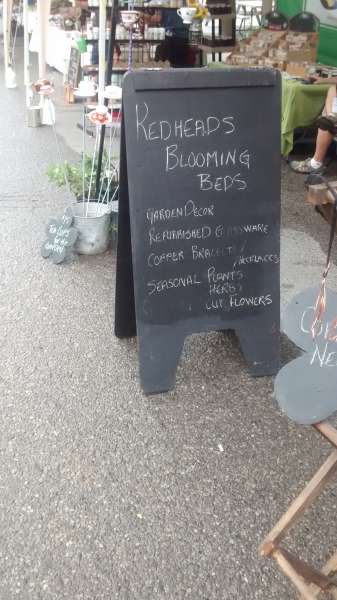 REDHEADS
BLOOMING
BEDS
GARDEN DECOR
REFURBISHED GLASSWARE
COPPER BRACELETS
/NECKLACES
SEASONAL PLANTS
HERBS
CUT FLOWERS
COP
NE